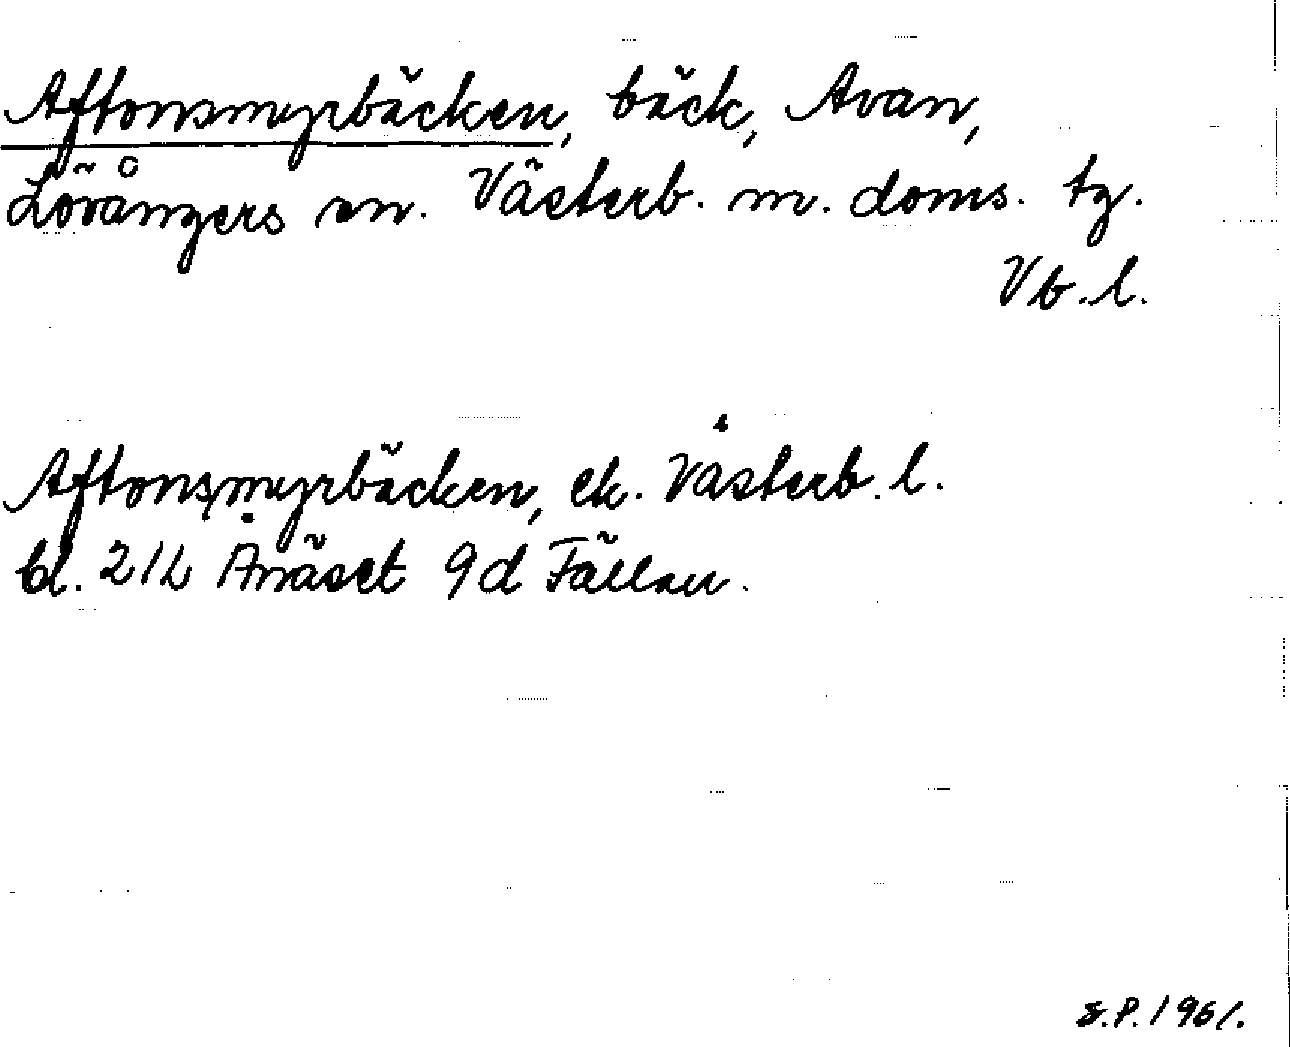 Aftonsmyrbäcken, bäck, Avan,
Lövångers sn. Västerb. m. doms. tg.
Vb. l.
Aftonsmyrbäcken, ek. Västerb. l.
bl. 21L Ånäset 9d Fällan.
S.P. 1961.